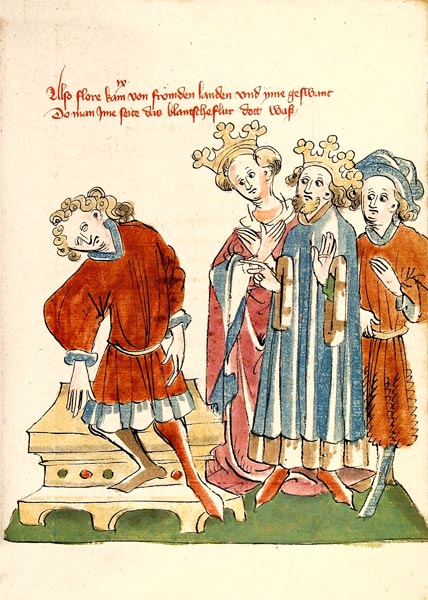 xv
Also flore kam von fromden landen vnd yme geswant
Do man Ime seite das blantscheflur dott waß